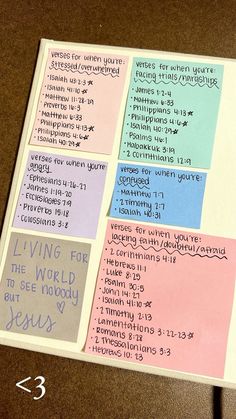 verses for when you're:
stressed/overwhelmed
• Isaiah 43:2-3*
• Isaiah 41:10 *
• Matthew 11:28-29
• Proverbs 3
• Matthew 6:33
• Philippians 4:13*
• Philippians 4:6*
verses for when you're:
facing trials/hardships
• James 1:2-4
• Matthew 6:33
• Philippians 4:13*
• Philippians 4:6*
• Isaiah 40:29*
• Psalms 46:1
• Habakkuk 3:19
• 2 Corinthians 12:9
verses for when you're:
angry
• Ephesians 4:26-27
• James 1:19-20
• Ecclesiastes 7:9
• Proverbs 19:18
• Colossians 3:8
verses for when you're:
confused
• Matthew 7:7
• 2 Timothy 2:7
• Isaiah 40:31
LIVING FOR
THE WORLD
TO SEE NOBODY
BUT
Jesus
verses for when you're:
lacking faith/doubtful/afraid
• 2 Corinthians 4:18
• Hebrews 11:1
• Luke 8:25
• Psalm 30:5
• John 14:27
• Isaiah 41:10*
• 2 Timothy 2:13
• Lamentations 3:22-23*
• Romans 8:28
• 2 Thessalonians 3:3
• Hebrews 10:23
<3